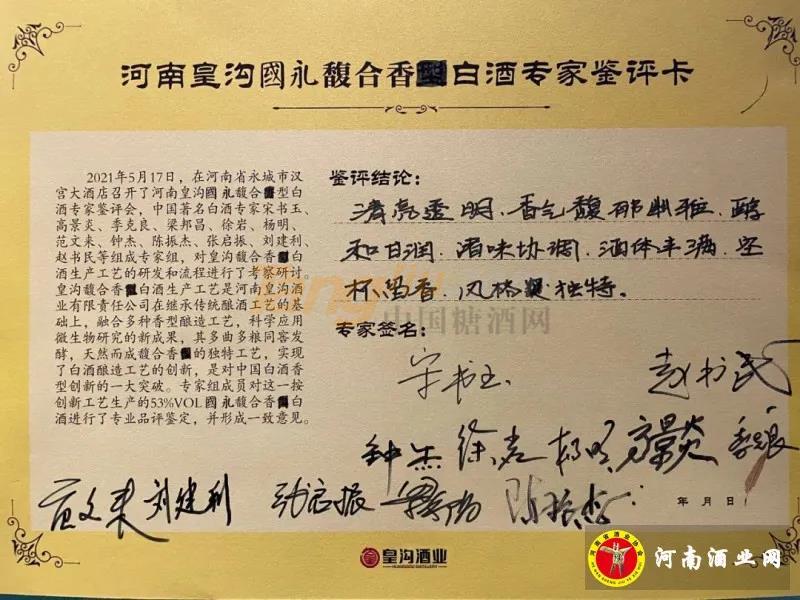 河南皇沟國永馥合香型白酒专家鉴评卡
2021年5月17日，在河南省永城市汉
宫大酒店召开了河南皇沟國永馥合香型白
酒专家鉴评会，中国著名白酒专家宋书玉、
高景炎、李克良、梁邦昌、徐岩、杨明、
范文来、钟杰、陈振杰、张启振、刘建利、
赵书民等组成专家组，对皇沟馥合香白
酒生产工艺的研发和流程进行了考察研讨。
皇沟馥合香白酒生产工艺是河南皇沟酒
业有限责任公司在继承传统酿酒工艺的基
础上，融合多种香型酿造工艺，科学应用
微生物研究的新成果，其多曲多粮同窖发
酵，天然而成馥合香的独特工艺，实现
了白酒酿造工艺的创新，是对中国白酒香
型创新的一大突破。专家组成员对这一按
创新工艺生产的53%VOL國永馥合香白
酒进行了专业品评鉴定，并形成一致意见。
鉴评结论：
清亮透明、香气馥郁幽雅、醇
和甘润、诸味协调、酒体丰满、空
杯留香、风格独特。
专家签名：
宋书玉 赵书民
钟杰 徐岩 杨明 高景炎 李克良
范文来 刘建利 张启振 梁邦昌 陈振杰
年月日
中国糖酒网
皇沟酒业
河南酒业网